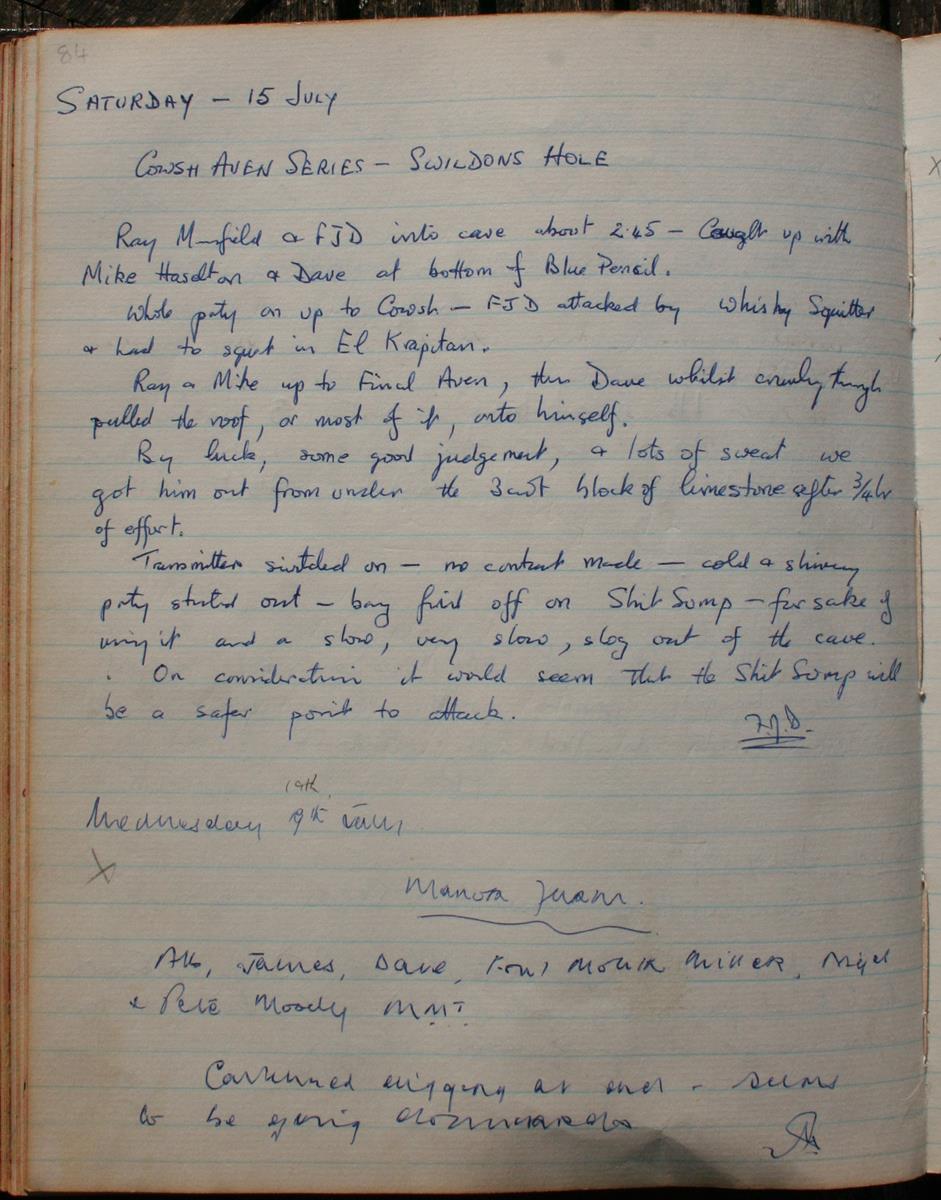 84
SATURDAY - 15 JULY
COWSH AVEN SERIES - SWILDONS HOLE
Ray Mansfield & FJD into cave about 2.45 - Caught up with
Mike Haselton & Dave at bottom of Blue Pencil.
Whole party on up to Cowsh - FJD attacked by Whisky Squitter
& had to squat in El Krapitan.
Ray & Mike up to Final Aven, then Dave whilst crawling through
pulled the roof, or most of it, onto himself.
By luck, some good judgement, & lots of sweat we
got him out from under the 3 cwt block of limestone after 3/4 hr
of effort.
Transmitter switched on - no contact made - cold & shivery
party started out - bang fired off on Shit Sump - for sake of
using it and a slow, very slow, slog out of the cave.
On consideration it would seem that the Shit Sump will
be a safer point to attack.
F.J.D.
19th
Wednesday 19th July
X
Manor Farm.
Alb, James, Dave, Miller, Nigel
& Pete Moody
Continued digging at end - seems
to be going downwards